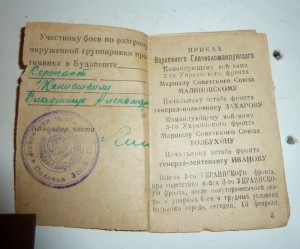 Участнику боев по разгрому
окруженной группировки про-
тивника в Будапеште
Сержант
Владимир
Командир части
Полевая
ПРИКАЗ
Верховного Главнокомандующего
Командующему войсками
2-го Украинского фронта
Маршалу Советского Союза
МАЛИНОВСКОМУ
Начальнику штаба фронта
генерал-полковнику ЗАХАРОВУ
Командующему войсками
3-го Украинского фронта
Маршалу Советского Союза
ТОЛБУХИНУ
Начальнику штаба фронта
генерал-лейтенанту ИВАНОВУ
Войска 2-го УКРАИНСКОГО фронта,
при содействии войск 3-го УКРАИНСКО-
ГО фронта, после полуторамесячной оса-
ды и упорных боев в трудных условиях
большого города, сегодня, 13 февраля,